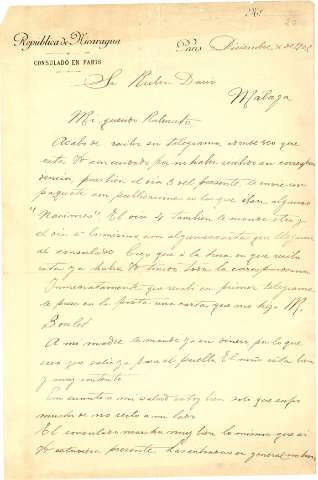 No.
República de Nicaragua
Paris Diciembre de 190
CONSULADO EN PARIS
Sr Ruben Dario
Malaga
Mi querido Rubencito
Acabo de recibir un telegrama donde veo que
esta Vd por no haber recibido su correspon
dencia, pues bien el dia 3 del presente, le envie un
paquete con publicaciones en lo que iban algunas
"Naciones" El dia 4 tambien le mande otra y
el dia 5 lo mismo con algunas cartas que llegaron
al consulado. Creo que a la hora en que reciba
esta ya habra Vd tenido toda la correspondencia
Inmediatamente que recibi su primer telegrama
le puse en la posta una carta que nos hizo M.
A mi madre le mande ya su dinero por lo que
creo que salga para el pueblo. El niño esta bien
y muy contento
En cuanto a mi salud estoy bien solo que sufro
mucho de no verlo a mi lado
El consulado marcha muy bien lo mismo que si
Vd estuviera presente. Las entradas en general no han